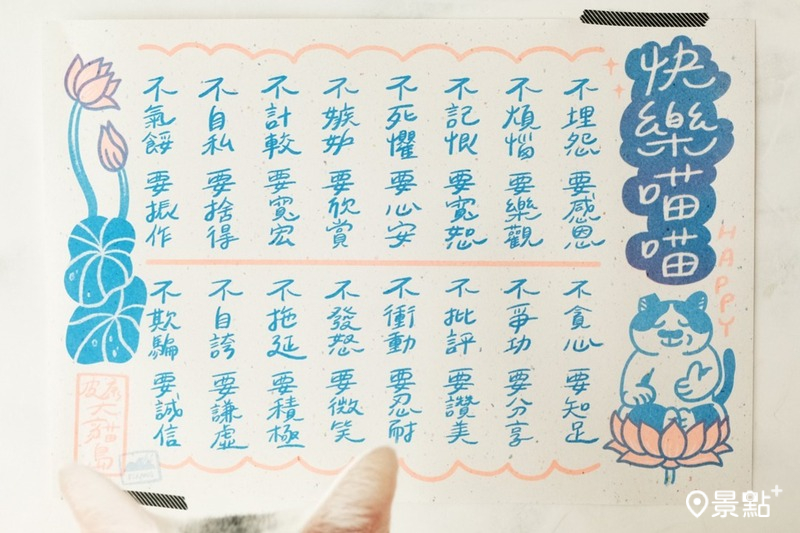 快樂喵喵
HAPPY
不埋怨 要感恩
不煩惱 要樂觀
不記恨 要寬恕
不死懼 要心安
不嫉妒 要欣賞
不計較 要寬宏
不自私 要捨得
不氣餒 要振作
不貪心 要知足
不爭功 要分享
不批評 要讚美
不衝動 要忍耐
不發怒 要微笑
不拖延 要積極
不自誇 要謙虛
不欺騙 要誠信
大貓島
景點+